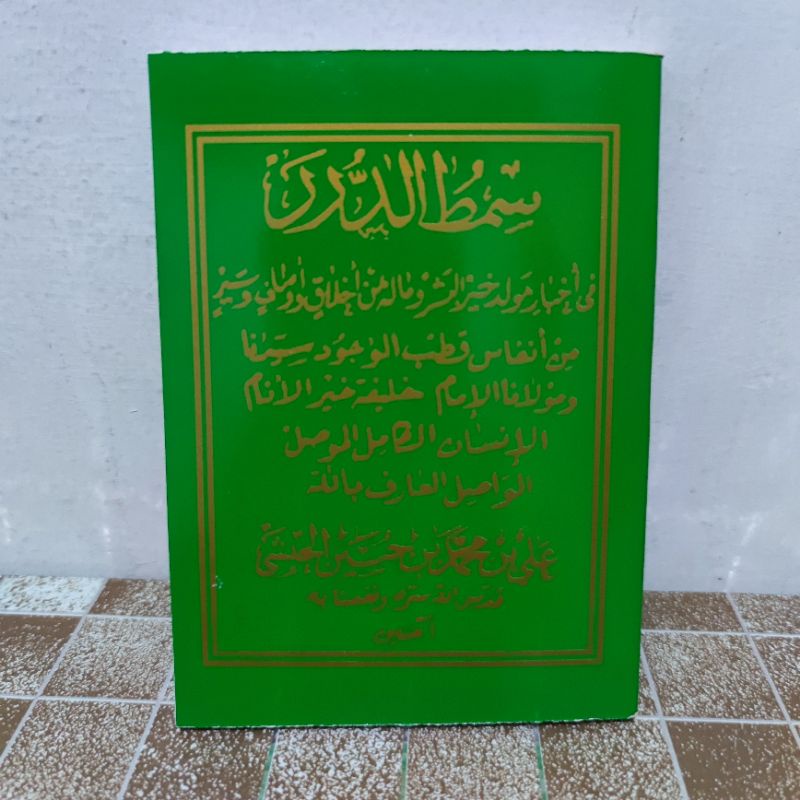 سِمْطُ الدُّرَرْ
في أخبار مولد خير البشر وما له من أخلاق وأوصاف وسير
من أنفاس قطب الوجود سيدنا
ومولانا الإمام خليفة خير الأنام
الإنسان الكامل الموصل
الواصل العارف بالله
علي بن محمد بن حسين الحبشي
قدس الله سره ونفعنا به
آمين